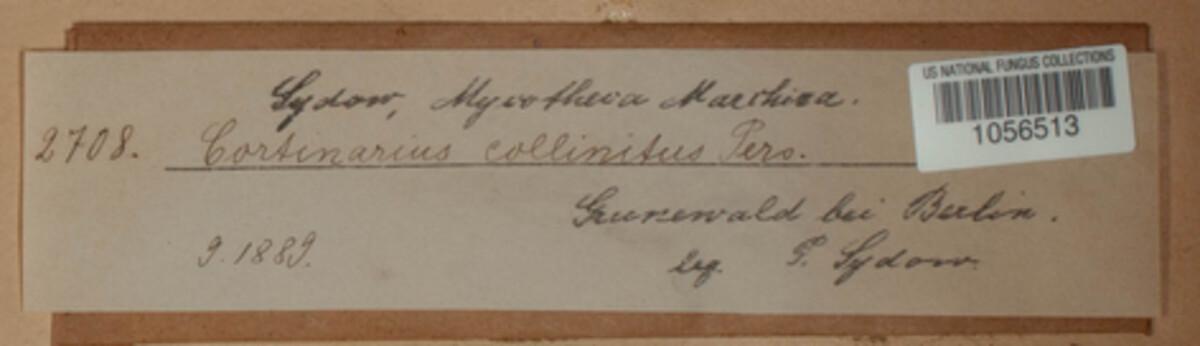 Sydow, Mycotheca Marchica.
US NATIONAL FUNGUS COLLECTIONS
1056513
2708. Cortinarius collinitus Pers.
Grunewald bei Berlin.
9. 1889.
leg. P. Sydow.